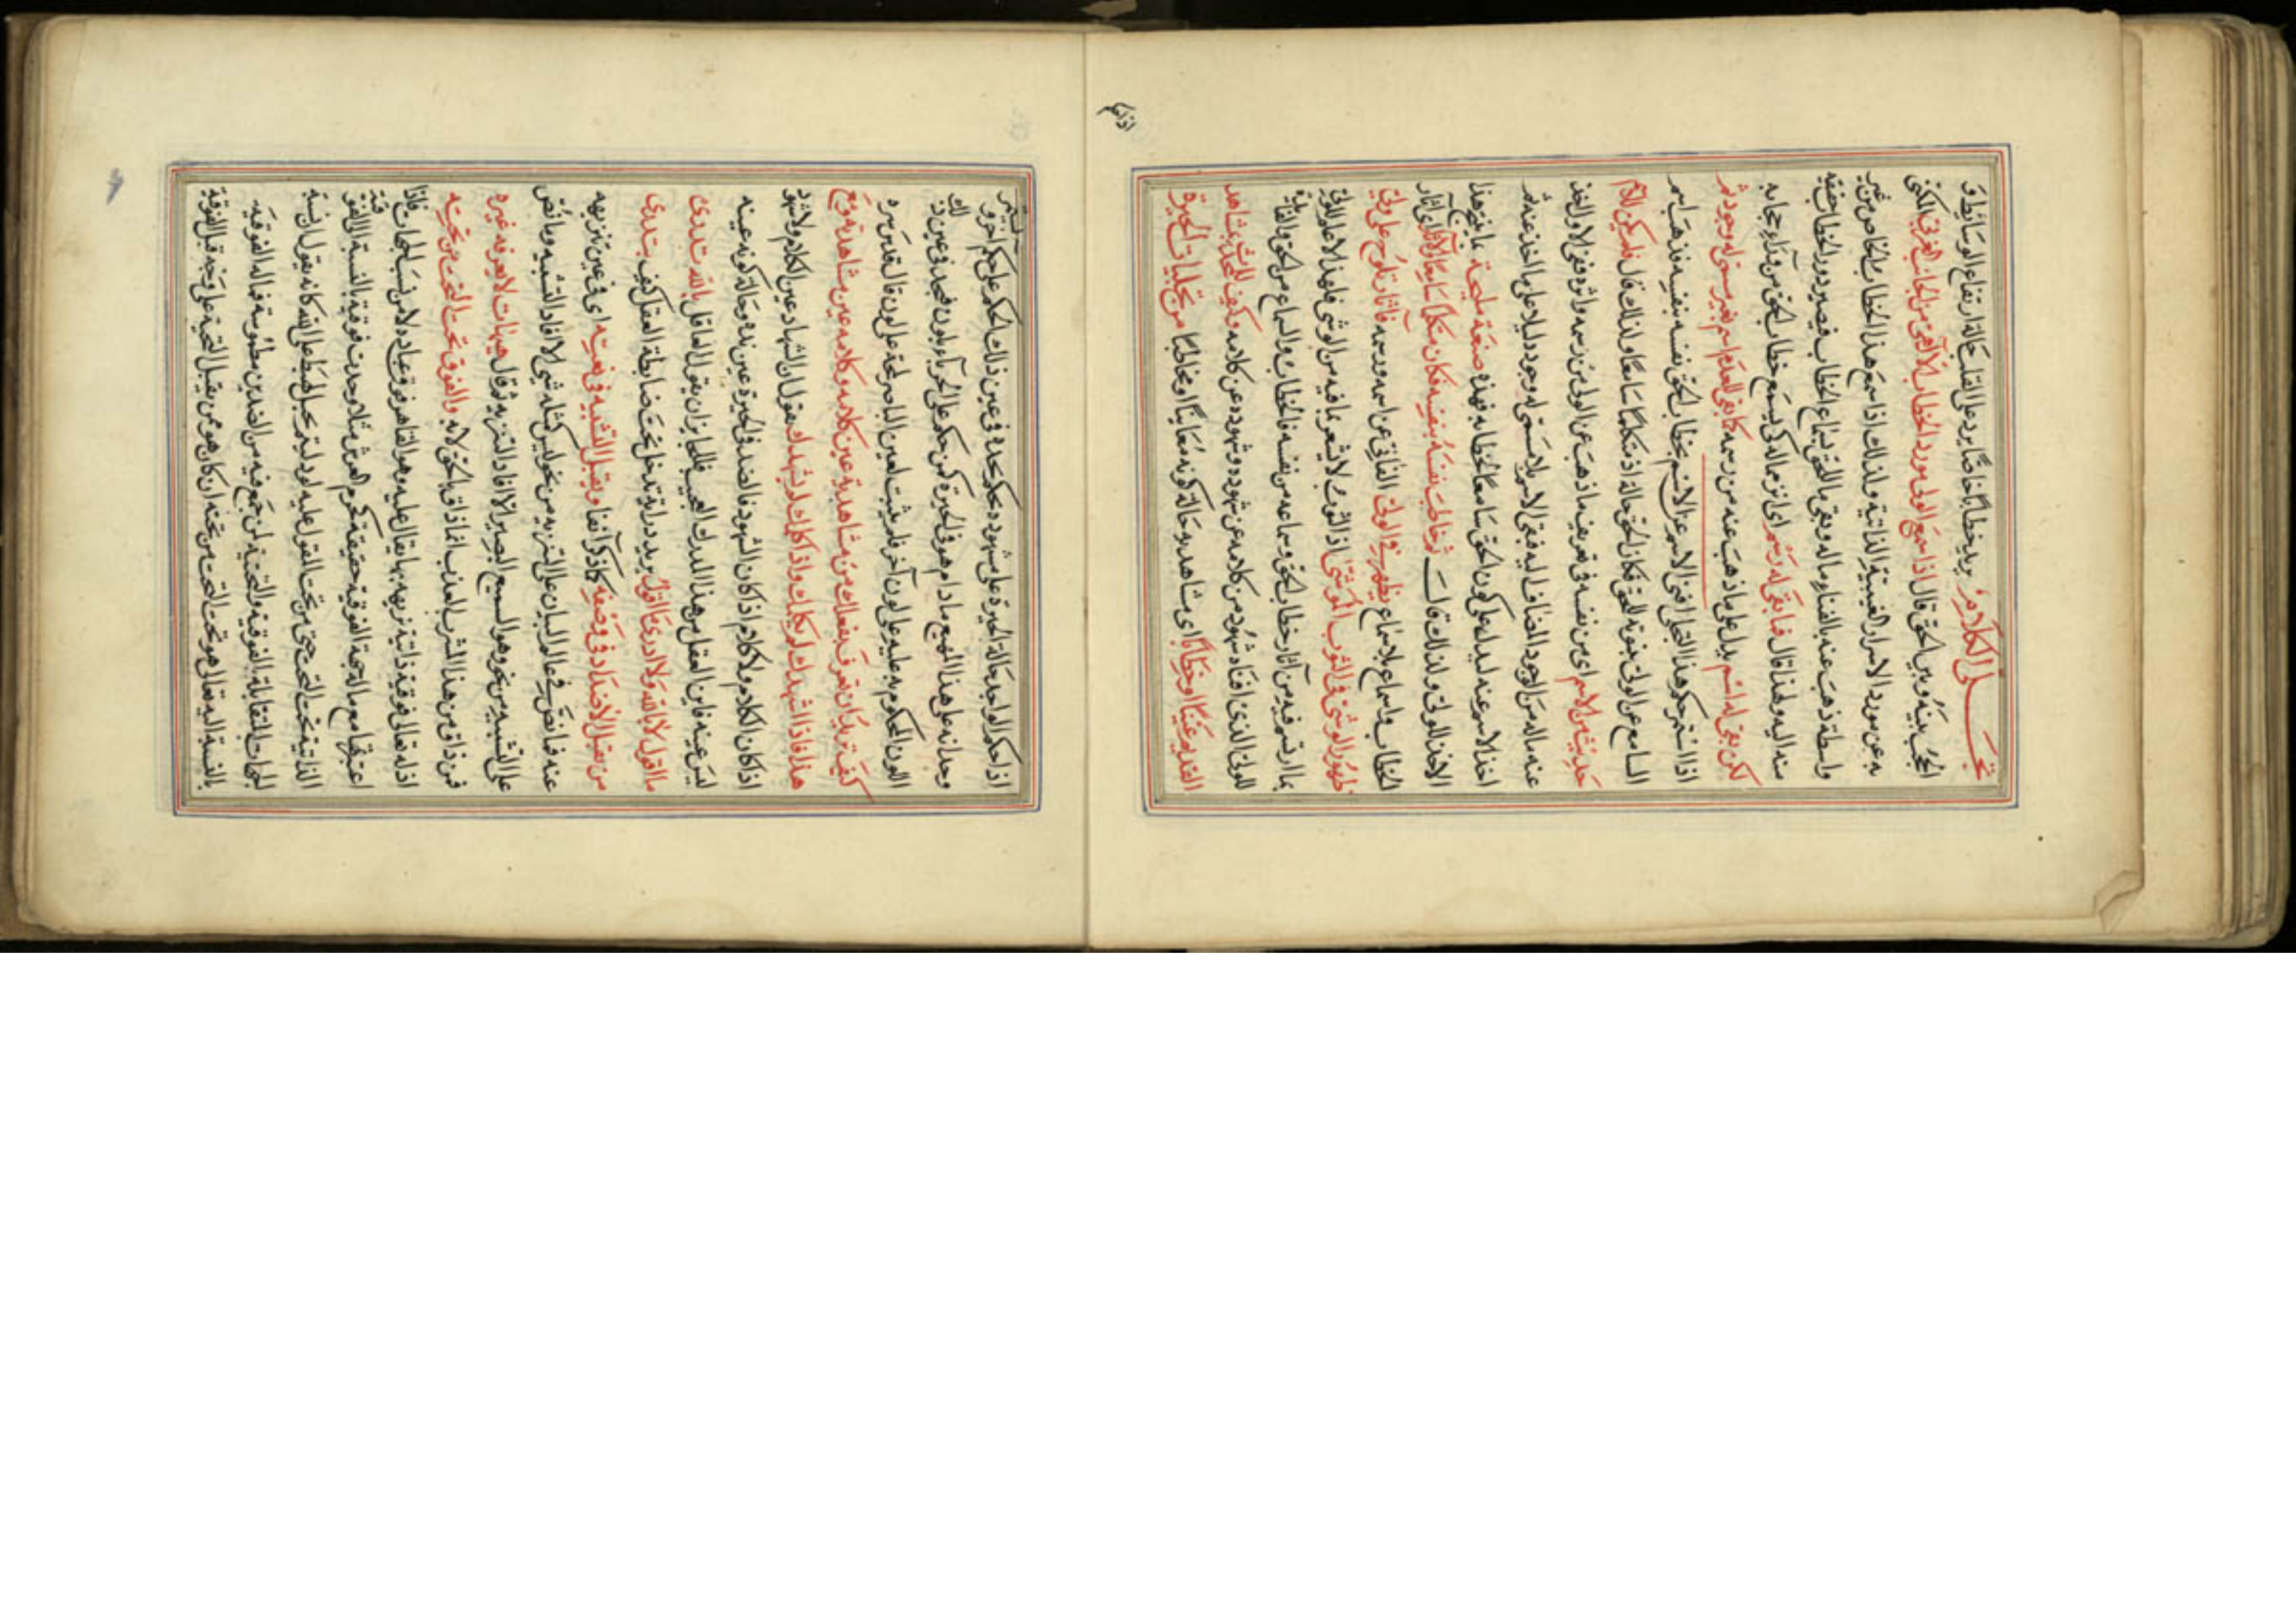 تجلى الكلام يريد خطابا خاصا يرد على القلب حالة ارتفاع الوسائط و
الحجب بينه وبين الحق قال اذا سمع الولى مورد الخطاب الالهى من الجانب الغربى المكنى
به عن مورد الاسرار الغيبية الذاتية ولذلك اذا سمع هذا الخطاب الخاص من غير
واسطة ذهب عنه بالفناء ماله وبقى ما للحق بسماع الخطاب فيصير دور الخطاب حقيقة
منه اليه ولهذا قال فما بقى له رسم اى اثر مما له كى يسمع خطاب الحق من ورآء حجابه
لكن بقى له اسم يدل على ما ذهب عنه من رسمه كما بقى للعدم اسم بغير مسمى له وجود ثم
اذا استمر حكم هذا التجلى افنى الاسم عن الاسم بخطاب الحق نفسه بنفسه فاذهب اسم
السامع عن الولى بثبوته للحق فكان الحق حالة اذ متكلما سامعا ولذلك قال فلم يكن للاسم
حديث من الاسم اى من نفسه فى تعريف ما ذهب عن الولى من رسمه واثره ففنى الاول واخذ
عنه ماله من الوجود المضاف اليه فبقى الاسم بلا مسمى له وجود دليلا على ما اخذ عنه ثم
اخذ الاسم عنه ليدل على كون الحق سامعا لخطابه فهذه صنعة مليحة ما هذا
الاخذ للولى ولذلك قال ثم خاطب نفسه بنفسه فكان متكلما سامعا والآثار
الخطاب واسماع بلا سماع تظهر فى الولى الفانى عن اسمه ورسمه فآثار تلوح على ولى
ظهور الوشى فى الثوب الموشى اذ الثوب لا شعور بما فيه من الوشى فلهذا لا علم للولى
بما ارتسم فيه من آثار خطاب الحق وسماعه من نفسه فالخطاب والسماع من الحق والفائدة
للولى الذى افناه شهوده من كلامه عن شهوده وشهوده عن كلامه وكيف للمحدث بمشاهدة
القديم عينا او خطابا اى مشاهدته حالة كونه معاينا او مخاطبا من تجليات الحيرة
اذا حكم
اذا حكم الواجد حالة الحيرة على مشهوده بحكم يجده فى عين ذلك الحكم على حكم آخر و
وجدانه على هذا المهيع ما دام هو فى الحيرة كمن حكم على الحرباء بلون فيجد فى عين ذلك
اللون المحكوم به عليه على لون آخر فلم يثبت لعين الباصر لمحة على لون قال قدس سره
كيف تريد ان تعرف بعقلك من مشاهدته عين كلامه وكلامه عين مشاهدته ومع
هذا فاذا اشهدك لم يكلمك واذا كلمك لم يشهدك يقول ان الشهاد عين الكلام ولا شهود
اذا كان الكلام ولا كلام اذا كان الشهود فالضد فى الحيرة عين ضده وحالة كونه عينه
ليس عينه فاين العقل من هذا المدرك العجيب فللحاير ان يقول للعاقل بالله تدرى
ما اقول لا بالله ولا ادرى ما اقول يريد دراية تدخل تحت ضابطة العقل كيف يدرى
من يقبل الاضداد فى وصفه كما ذكر آنفا ويقبل التشبيه فى نعته اى فى عين تنزيهه
عنه فما نص فى عالم البيان على التنزيه من نحو ليس كمثله شئ الا افاد التشبيه وما نص
على التشبيه من نحو وهو السميع البصير الا افاد التنزيه ثم قال هيهات لا يعرفه غيره
فمن ذاق من هذا المشرب العذب انما ذاق بالحق لا به والفوق تحت التحت من تحته
اذ له تعالى فوقية ذاتية نزيهة بها يقال عليه وهو القاهر فوق عباده لا من نسب الجهات فاذا
اعتبرتها مع ماله جهة الفوقية حقيقة كجرم العرش مثلا وجدت فوقيته بالنسبة الى الفوقية
الذاتية تحت التحت حتى من تحت القول عليه لو دليتم بحبل لهبط على الله كانه يقول ان نسبة
الجهات المتقابلة الفوقية والتحتية لمن جمع فيه من الضدين مطموسة فما له الفوقية
بالنسبة اليه تعالى هو تحت التحت من تحته ان كان هو ممن يقبل التحتية على وجه قبل الفوقية